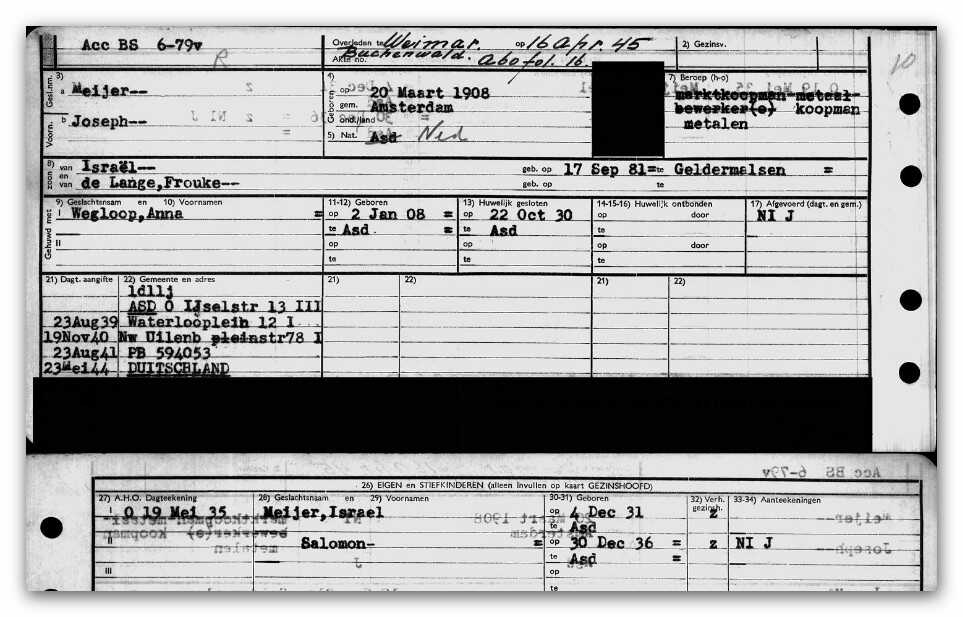 Acc BS 6-79v
R
Overleden te Weimar. op 16 Apr. 45
Buchenwald.
Akte no. Abo fol. 16
2) Gezinsv.
10
Gesl.nm.
3)
a Meijer--
Voorn.
b Joseph--
4)
Geboren
op 20 Maart 1908
gem. Amsterdam
5) Nat. Asd Ned
7) Beroep (h-o)
marktkoopman-metaal-
bewerker(o) koopman
metalen
8)
zoon
van Israël--
en
van de Lange,Frouke--
geb. op 17 Sep 81= te Geldermalsen =
geb. op te
Gehuwd met
9) Geslachtsnaam en 10) Voornamen
I Wegloop,Anna =
II
11-12) Geboren
op 2 Jan 08 =
te Asd =
op
te
13) Huwelijk gesloten
op 22 Oct 30
te Asd
op
te
14-15-16) Huwelijk ontbonden
op door
te
op door
te
17) Afgevoerd (dagt. en gem.)
NI J
21) Dagt. aangifte 22) Gemeente en adres 21) 22) 21) 22)
ldllj
ASD O IJselstr 13 III
23Aug39 Waterloopleih 12 I
19Nov40 Nw Uilenb pleinstr78 I
23Aug41 PB 594053
23Mei44 DUITSCHLAND
Acc BS 6-79v
26) EIGEN en STIEFKINDEREN (alleen invullen op kaart GEZINSHOOFD)
27) A.H.O. Dagteekening 28) Geslachtsnaam en 29) Voornamen 30-31) Geboren 32) Verh. gezinsh. 33-34) Aanteekeningen
I O 19 Mei 35 Meijer,Israel op 4 Dec 31 z
te Asd
II Salomon- = op 30 Dec 36 = z NI J
te Asd =
III op
te